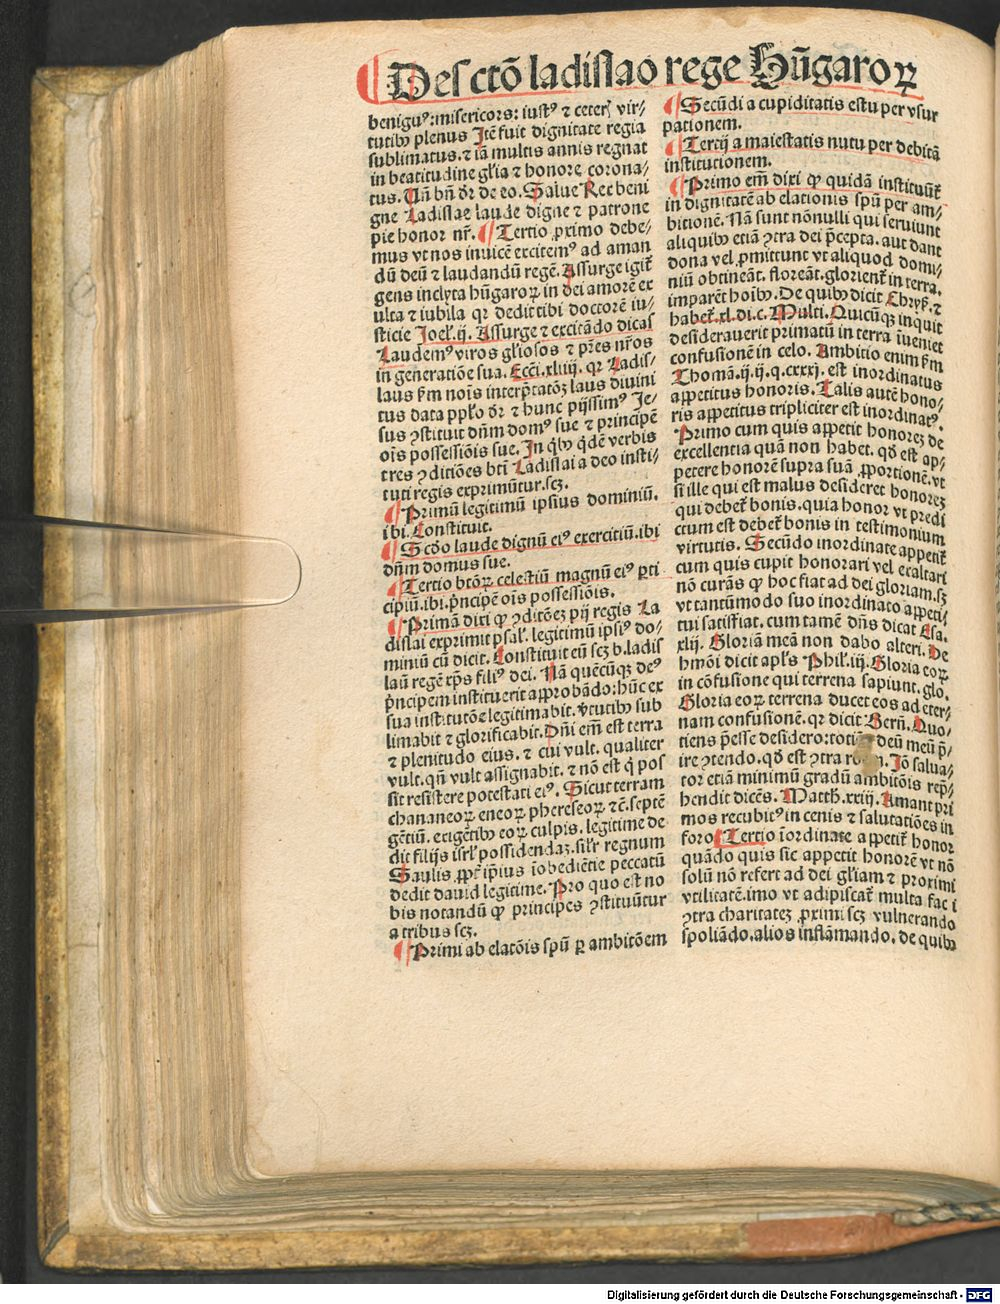 ¶ De sctō ladislao rege Hūgaroꝝ
benigu⁹: misericors: iust⁹ ⁊ ceterꝭ vir-
tutibꝰ plenus Itē fuit dignitate regia
sublimatus. ⁊ iā multis annis regnat
in beatitudine gl̄ia ⁊ honore corona-
tus. Uñ bñ dr̄ de eo. Salue Rex beni
gne Ladislae laude digne ⁊ patrone
pie honor nr̄. ¶ Tertio ꝓximo debe-
mus vt nos inuicē excitem⁹ ad aman
dū deū ⁊ laudandū regē. Assurge igit̄
gens inclyta hūgaroꝝ in dei amorē ex
ulta ⁊ iubila qꝛ dedit tibi doctorē iu-
sticie Joel̄. ij. Assurge ⁊ excitādo dicas
Laudem⁹ viros gl̄iosos ⁊ pr̄es nr̄os
in generatiōe sua. Eccī. xliiij. qꝛ Ladis-
laus ẜm noīs interp̄tatōꝫ laus diuini
tus data pp̄lo dr̄ ⁊ hunc pijssim⁹ Je-
sus ꝯstituit dñm dom⁹ sue ⁊ principē
oīs possessiōis sue. In q̇bꝰ q̇dē verbis
tres ꝯditiōes btī Ladislai a deo insti-
tuti regis exprimūtur. scꝫ.
¶ Primū legitimū ipsius dominiū.
ibi. Constituit.
¶ Scd̄o laude dignū ei⁹ exercitiū. ibi
dñm domus sue.
¶ Tertio btōꝝ celestiū magnū ei⁹ ꝑti
cipiū. ibi. p̄ncipē oīs possessiōis.
¶ Primā dixi ꝙ ꝯditōeꝫ pij regis La
dislai exprimit psal̄. legitimū ipsi⁹ do-
miniū cū dicit. Constituit eū scꝫ b. ladis
laū regē xp̄s fili⁹ dei. Nā quēcūqꝫ de⁹
p̄ncipem instituerit approbādo: hūc ex
sua institutōe legitimabit. v̄tutibꝰ sub
limabit ⁊ glorificabit. Dñi em̄ est terra
⁊ plenitudo eius. ⁊ cui vult. qualiter
vult. qñ vult assignabit. ⁊ nō est q̇ pos
sit resistere potestati ei⁹. Sicut terram
chananeoꝝ eneoꝝ phereseoꝝ ⁊c̄. septē
gētiū. exigētibꝰ eoꝝ culpis. legitime de
dit filijs isrl̄ possidendaꝫ. sil̄r regnum
Saulis. ꝓpt̄ ip̄ius īobediētie peccatū
dedit dauid legitime. Pro quo est no
bis notandū ꝙ principes ꝯstituūtur
a tribus scꝫ.
¶ Primi ab elatōis spū ꝑ ambitōem
¶ Secūdi a cupiditatis estu per vsur
pationem.
¶ Tercij a maiestatis nutu per debitā
institutionem.
¶ Primo em̄ dixi ꝙ quidā instituūt̄
in dignitatē ab elationis spū per am-
bitionē. Nā sunt nōnulli qui seruiunt
aliquibꝰ etiā ꝯtra dei p̄cepta. aut dant
dona vel ꝓmittunt vt aliquod domi-
niū obtineāt. floreāt. glorient̄ in terra.
imparēt hoībꝰ. De quibꝰ dicit Chryẜ. ⁊
habet̄. xl. di. c. Multi. Quicūqꝫ inquit
desiderauerit primatū in terra īueniet
confusionē in celo. Ambitio enim ẜm
Thomā. ij. ij. q. cxxxj. est inordinatus
appetitus honoris. Talis autē hono-
ris appetitus tripliciter est inordinat⁹.
Primo cum quis appetit honoreꝫ de
excellentia quā non habet. qd̄ est ap-
petere honorē supra suā ꝓportionē. vt
si ille qui est malus desideret honoreꝫ
qui debet̄ bonis. quia honor vt predi
ctum est debet̄ bonis in testimonium
virtutis. Secūdo inordinate appetit̄
cum quis cupit honorari vel exaltari
nō curās ꝙ hoc fiat ad dei gloriam. sꝫ
vt tantūmodo suo inordinato appeti-
tui satisfiat. cum tamē dñs dicat Esa.
xlij. Gloriā meā non dabo alteri. De
hmōi dicit apl̄s Phil̄. iij. Gloria eoꝝ
in cōfusione qui terrena sapiunt. glo.
Gloria eoꝝ terrena ducet eos ad eter-
nam confusionē. qꝛ dicit Berñ. Quo-
tiens p̄esse desidero: toti deū meū p̄-
ire ꝯtendo. qd̄ est ꝯtra Jō salua-
tor etiā minimū gradū ambitōis rep̄-
hendit dicēs. Matth̄. xxiij. Amant pri
mos recubit⁹ in cenis ⁊ salutatiōes in
foro ¶ Tertio īordinate appetit̄ honor
quādo quis sic appetit honorē vt nō
solū nō refert ad dei gl̄iam ⁊ proximi
vtilitatē. imo vt adipiscat̄ multa fac i
ꝯtra charitateꝫ ꝓximi scꝫ vulnerando
spoliādo. alios inflāmando. de quibꝰ
Digitalisierung gefördert durch die Deutsche Forschungsgemeinschaft - DFG